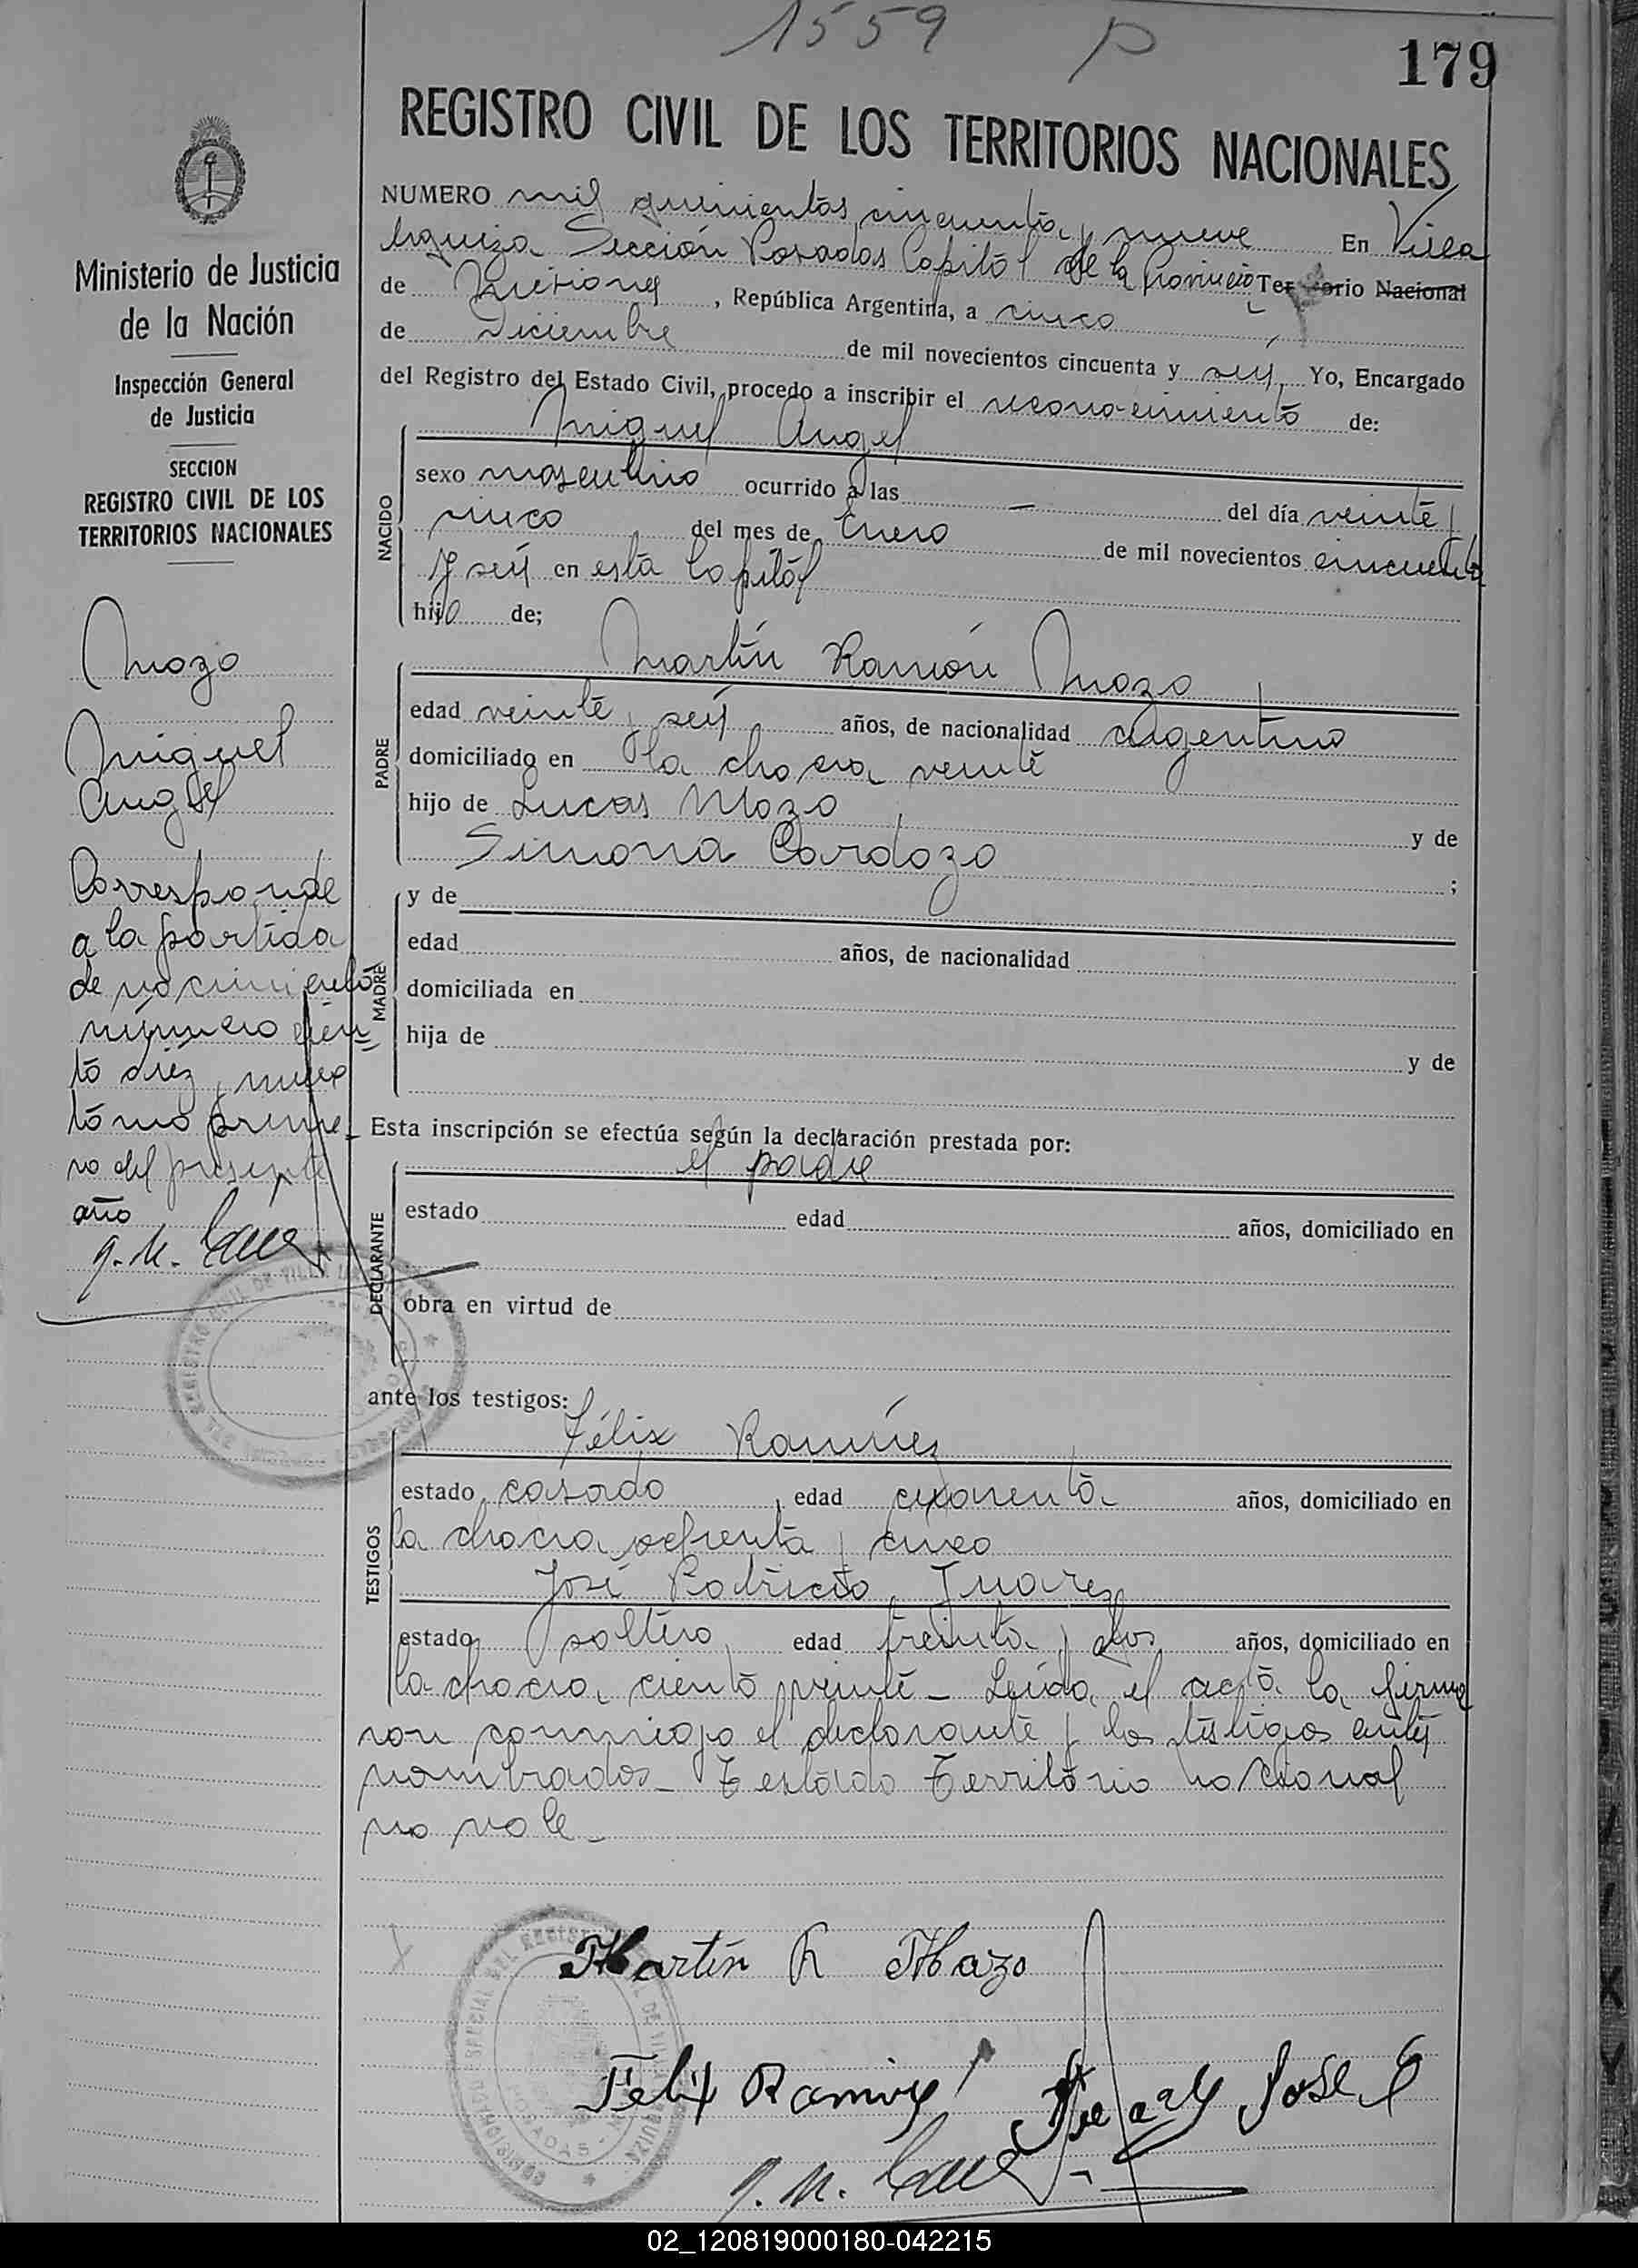 1559 P
179
REGISTRO CIVIL DE LOS TERRITORIOS NACIONALES
NUMERO mil quinientos cincuenta y nueve En Villa
Urquiza Sección Posadas Capital de la Provincia Territorio Nacional
de Misiones, República Argentina, a cinco
de Diciembre de mil novecientos cincuenta y seis, Yo, Encargado
del Registro del Estado Civil, procedo a inscribir el reconocimiento de:
Miguel Angel
NACIDO
sexo masculino ocurrido a las — del día veinte y
cinco del mes de Enero de mil novecientos cincuenta
y seis en esta Capital
hijo de;
Martín Ramón Mozo
PADRE
edad veinte y seis años, de nacionalidad argentino
domiciliado en la chacra veinte
hijo de Lucas Mozo y de
Simona Cardozo ;
MADRE
y de
edad años, de nacionalidad
domiciliada en
hija de y de
Esta inscripción se efectúa según la declaración prestada por:
el padre
DECLARANTE
estado edad años, domiciliado en
obra en virtud de
ante los testigos:
Félix Ramírez
TESTIGOS
estado casado, edad cuarenta años, domiciliado en
la chacra setenta y cinco
José Patricio Juarez
estado soltero, edad treinta y dos años, domiciliado en
la chacra ciento veinte — Leída el acta la firma
ron conmigo el declarante y los testigos antes
nombrados — Testado Territorio Nacional
no vale —
Martín R Mazo
Felix Ramirez
Jose
Ministerio de Justicia
de la Nación
Inspección General
de Justicia
SECCION
REGISTRO CIVIL DE LOS
TERRITORIOS NACIONALES
Mozo
Miguel
Angel
Corresponde
a la partida
de nacimiento
número cien=
to diez y nueve
tomo prime_
ro del presente
año
02_120819000180-042215